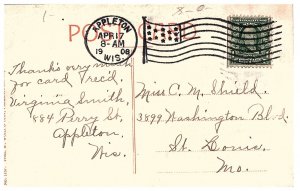 1-
8-0-
POST CARD
APPLETON
APR 17
8-AM
1908
WIS.
Thanks very much
for card Rec'd.
Virginia Smith,
884 Perry St.
Appleton,
Wis.
Miss C. M. Shield.
3899 Washington Blvd.
St. Louis,
Mo.